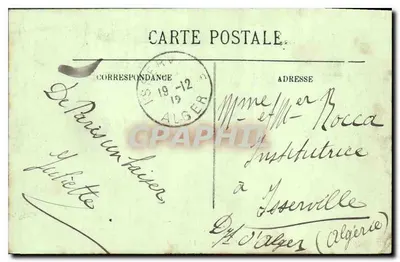 CARTE POSTALE
CORRESPONDANCE
ADRESSE
ISSERV
19-12
12
ALGER
De Paris un baiser
Juliette
Mme et Mr Rocca
Institutrice
à
Isserville
Dpt d'Alger (Algérie)
CPARAMA